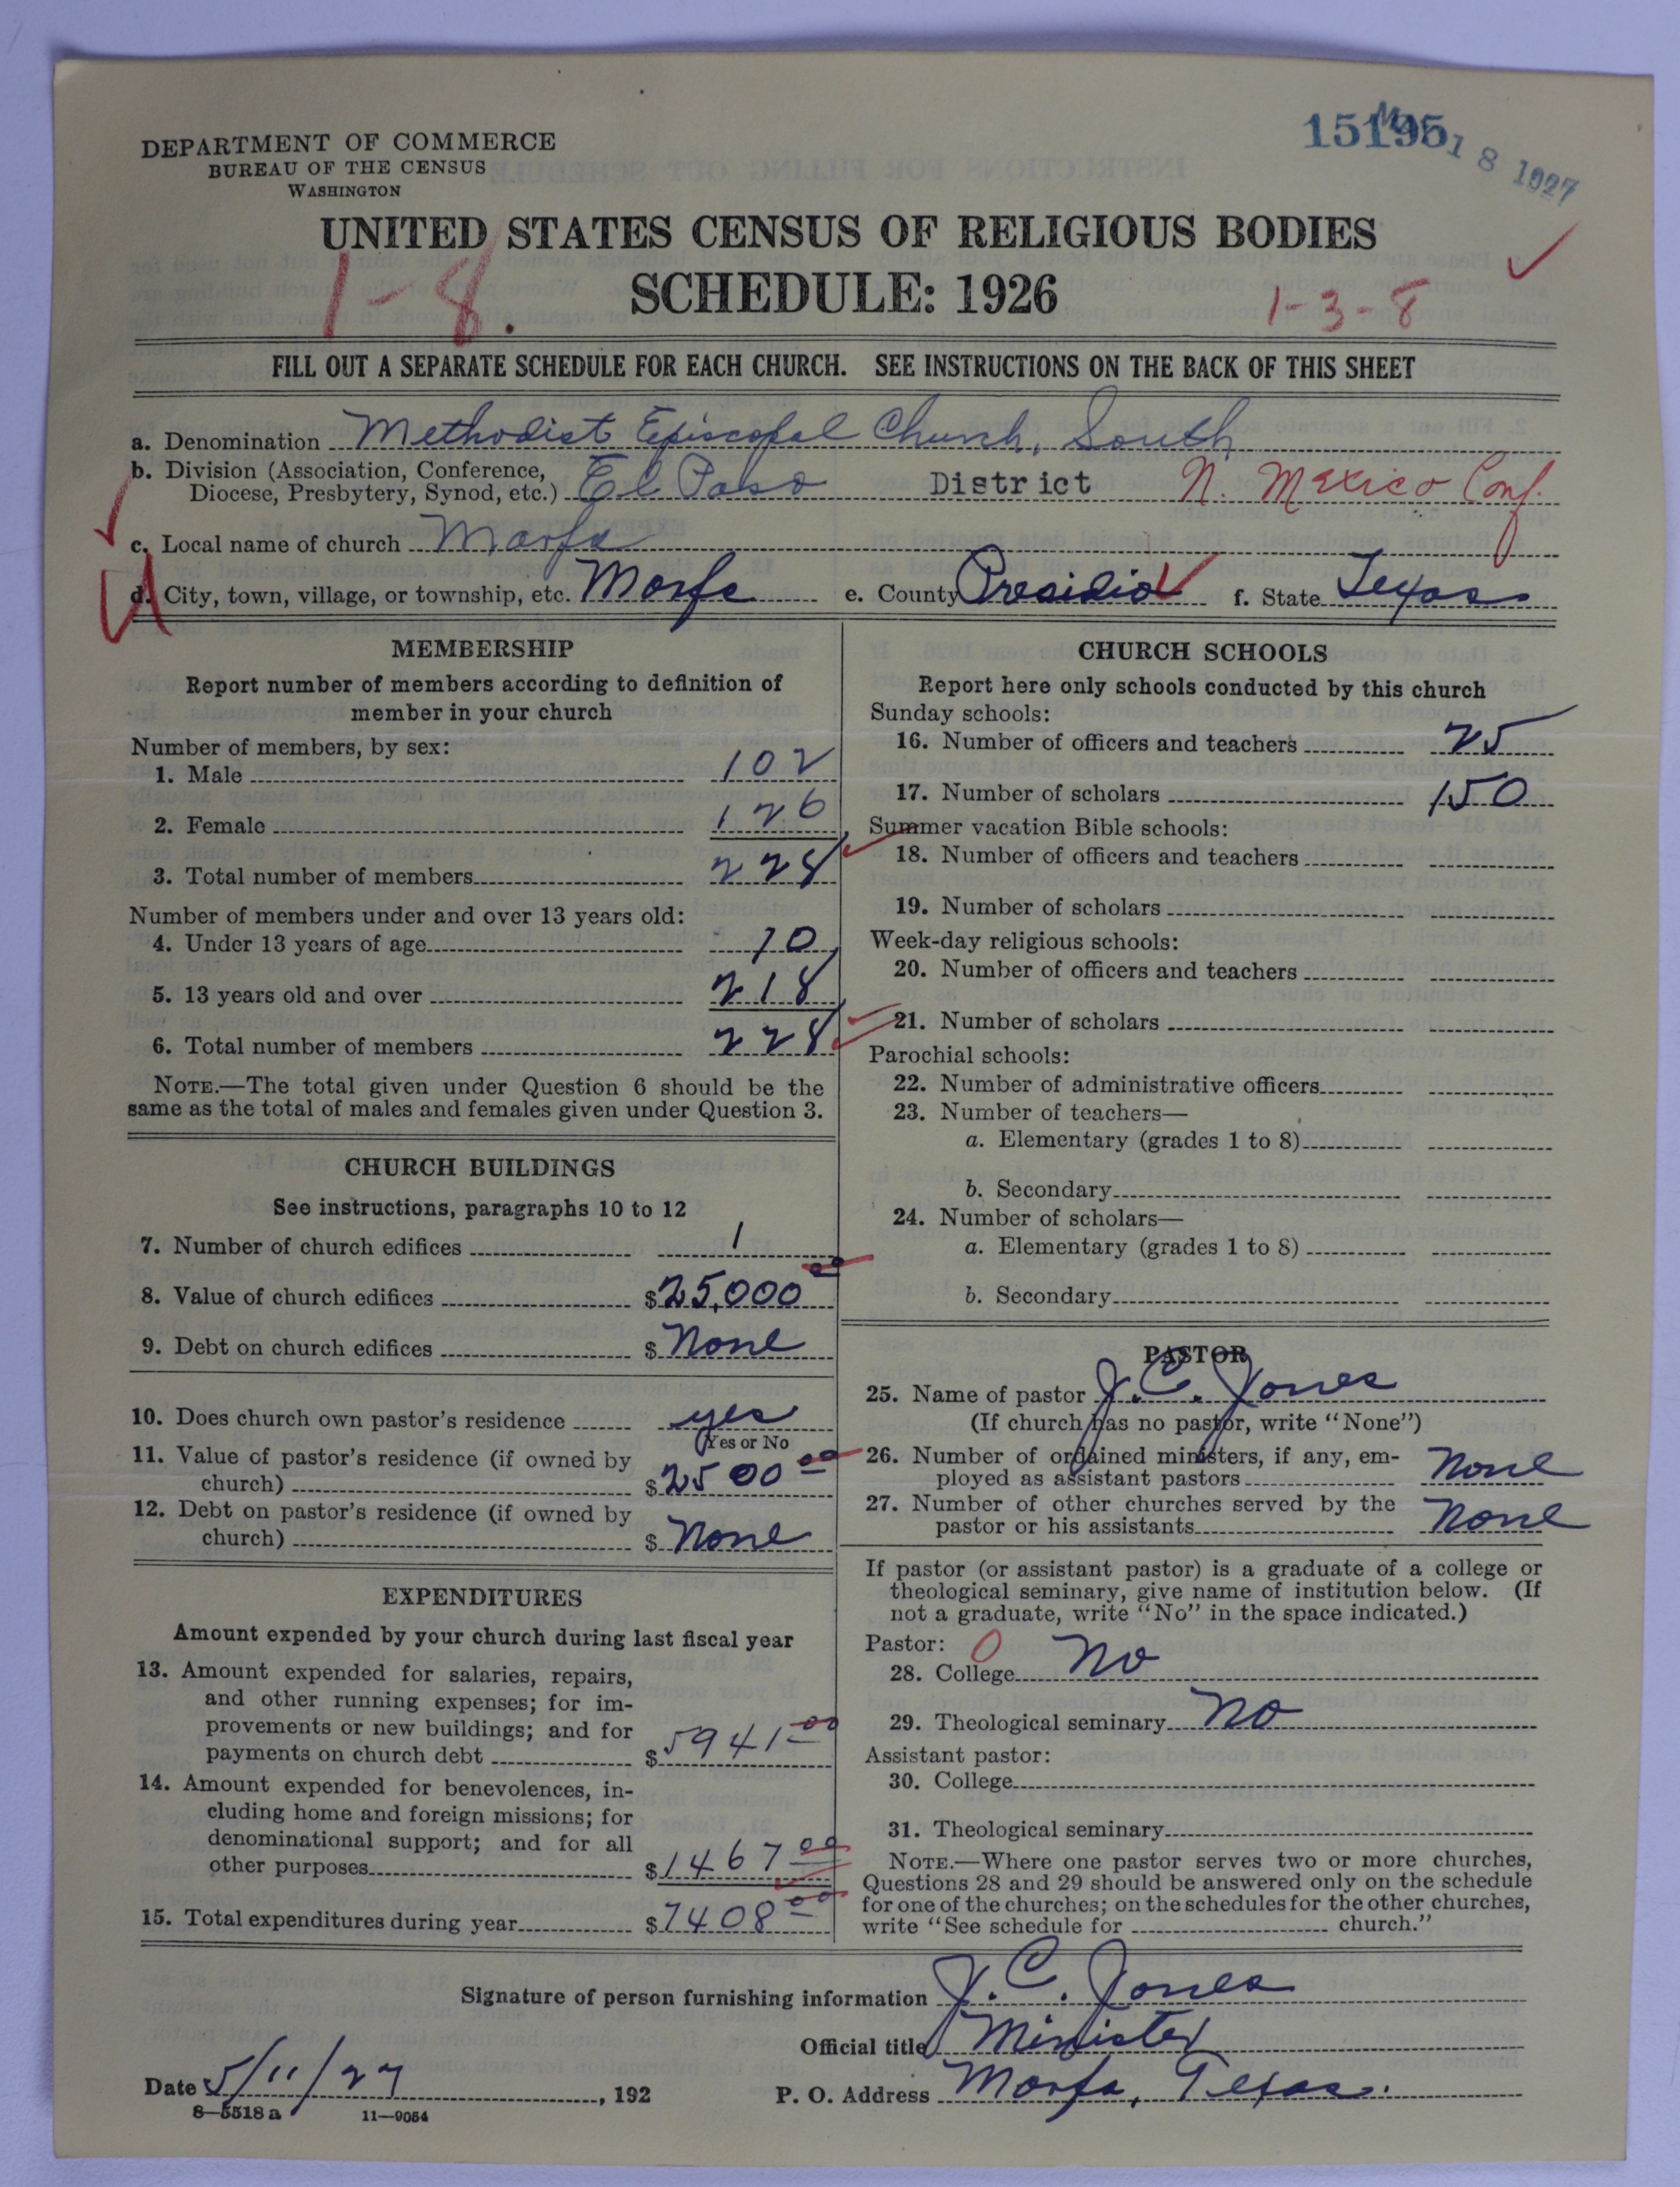 15195
May 18 1927
DEPARTMENT OF COMMERCE
BUREAU OF THE CENSUS
WASHINGTON
UNITED STATES CENSUS OF RELIGIOUS BODIES
SCHEDULE: 1926
1-8.
1-3-8
FILL OUT A SEPARATE SCHEDULE FOR EACH CHURCH. SEE INSTRUCTIONS ON THE BACK OF THIS SHEET
a. Denomination Methodist Episcopal Church, South
b. Division (Association, Conference,
Diocese, Presbytery, Synod, etc.) El Paso District N. Mexico Conf.
c. Local name of church Marfa
d. City, town, village, or township, etc. Marfa e. County Presidio f. State Texas
MEMBERSHIP
Report number of members according to definition of
member in your church
Number of members, by sex:
1. Male 102
2. Female 126
3. Total number of members 228
Number of members under and over 13 years old:
4. Under 13 years of age 10
5. 13 years old and over 218
6. Total number of members 228
NOTE.—The total given under Question 6 should be the
same as the total of males and females given under Question 3.
CHURCH BUILDINGS
See instructions, paragraphs 10 to 12
7. Number of church edifices 1
8. Value of church edifices $25,000 00
9. Debt on church edifices $ None
10. Does church own pastor's residence yes
(Yes or No
11. Value of pastor's residence (if owned by
church) $2500 00
12. Debt on pastor's residence (if owned by
church) $ None
EXPENDITURES
Amount expended by your church during last fiscal year
13. Amount expended for salaries, repairs,
and other running expenses; for im-
provements or new buildings; and for
payments on church debt $5941 00
14. Amount expended for benevolences, in-
cluding home and foreign missions; for
denominational support; and for all
other purposes $1467 00
15. Total expenditures during year $7408 00
CHURCH SCHOOLS
Report here only schools conducted by this church
Sunday schools:
16. Number of officers and teachers 25
17. Number of scholars 150
Summer vacation Bible schools:
18. Number of officers and teachers
19. Number of scholars
Week-day religious schools:
20. Number of officers and teachers
21. Number of scholars
Parochial schools:
22. Number of administrative officers
23. Number of teachers—
a. Elementary (grades 1 to 8)
b. Secondary
24. Number of scholars—
a. Elementary (grades 1 to 8)
b. Secondary
PASTOR
25. Name of pastor J. C. Jones
(If church has no pastor, write "None")
26. Number of ordained ministers, if any, em-
ployed as assistant pastors None
27. Number of other churches served by the
pastor or his assistants None
If pastor (or assistant pastor) is a graduate of a college or
theological seminary, give name of institution below. (If
not a graduate, write "No" in the space indicated.)
Pastor: 0
28. College No
29. Theological seminary No
Assistant pastor:
30. College
31. Theological seminary
NOTE.—Where one pastor serves two or more churches,
Questions 28 and 29 should be answered only on the schedule
for one of the churches; on the schedules for the other churches,
write "See schedule for church."
Signature of person furnishing information J. C. Jones
Official title Minister
Date 5/11/27, 192 P. O. Address Marfa, Texas.
8—5518 a 11—9054